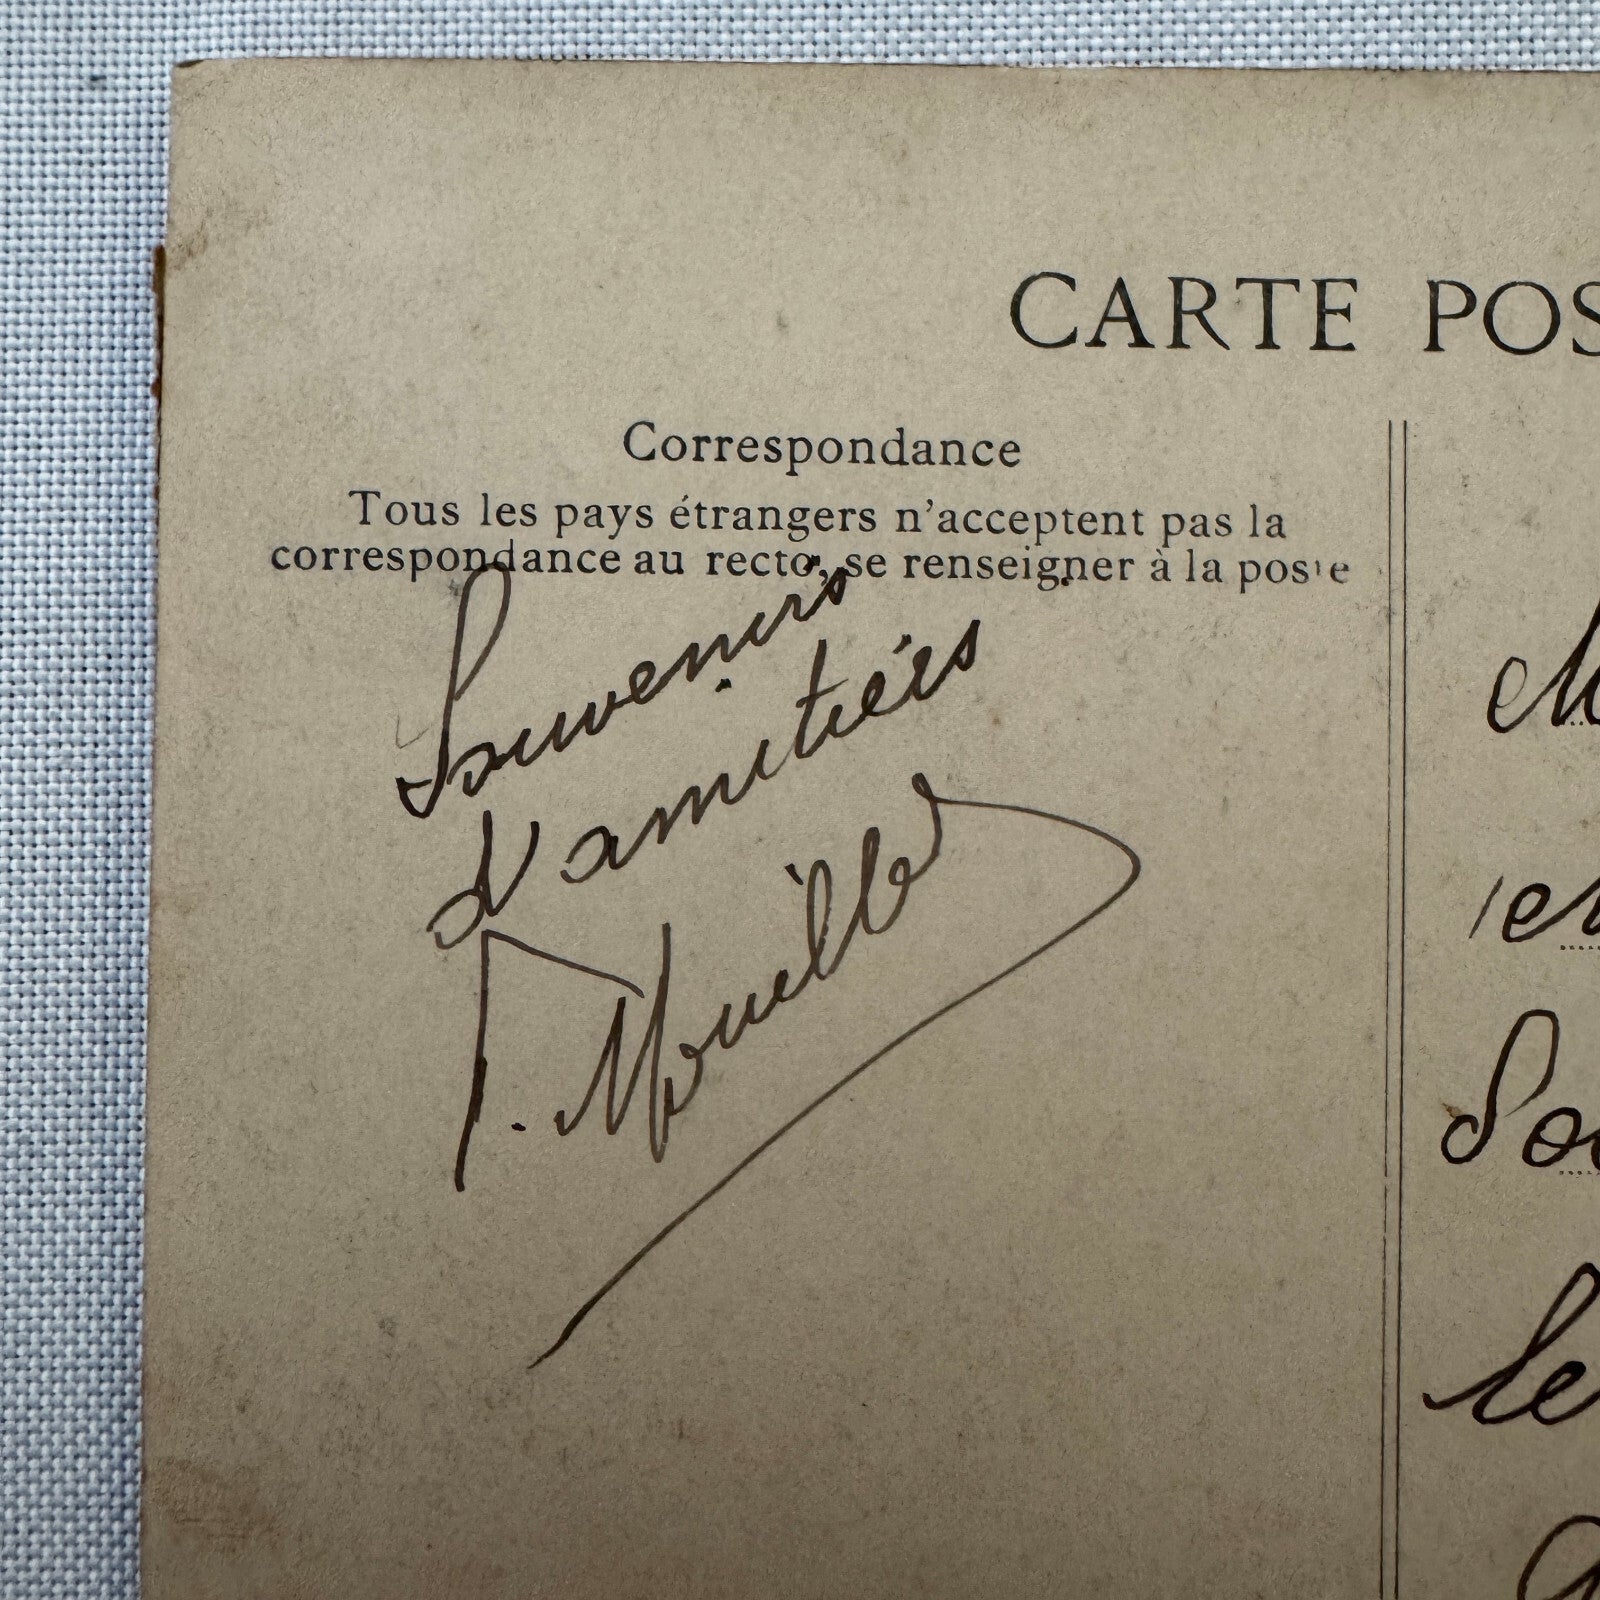 CARTE POS
Correspondance
Tous les pays étrangers n'acceptent pas la
correspondance au recto, se renseigner à la poste
Souvenirs
d'amitiés
M
en
So
le